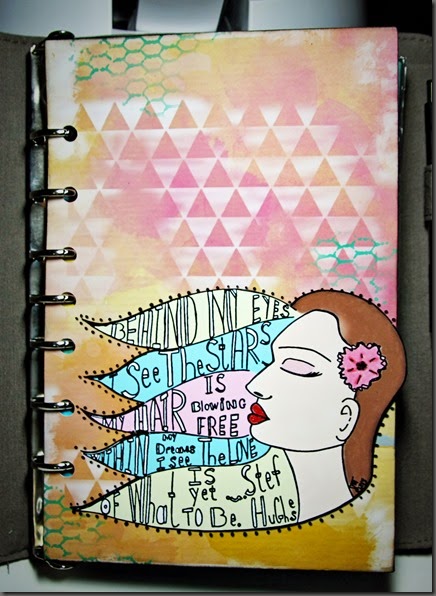 BEHIND MY EYES
See The StARS
MY HAIR IS Blowing FREE
THIN my Dreams I see The LOVE
OF WhaT IS yet TO Be.
...Stef Hughes